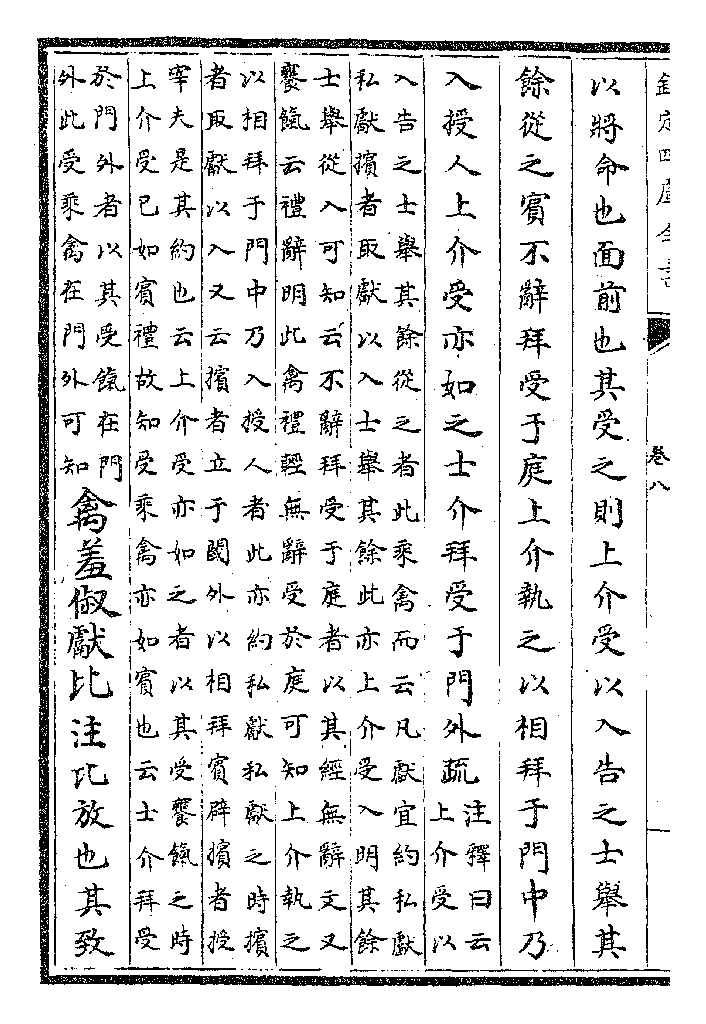 欽定四庫全書
卷八
以將命也面前也其受之則上介受以入告之士舉其
餘從之賓不辭拜受于庭上介執之以相拜于門中乃
入授人上介受亦如之士介拜受于門外疏
注釋曰云
上介受以
入告之士舉其餘從之者此乘禽而云凡獻宜約私獻
私獻擯者取獻以入士舉其餘此亦上介受入明其餘
士舉從入可知云不辭拜受于庭者以其經無辭文又
饔餼云禮辭明此禽禮輕無辭受於庭可知上介執之
以相拜于門中乃入授人者此亦約私獻私獻之時擯
者取獻以入又云擯者立于閾外以相拜賓辟擯者授
宰夫是其約也云上介受亦如之者以其受饔餼之時
上介受已如賓禮故知受乘禽亦如賓也云士介拜受
於門外者以其受餼在門
外此受乘禽在門外可知
禽羞俶獻比注比放也其致